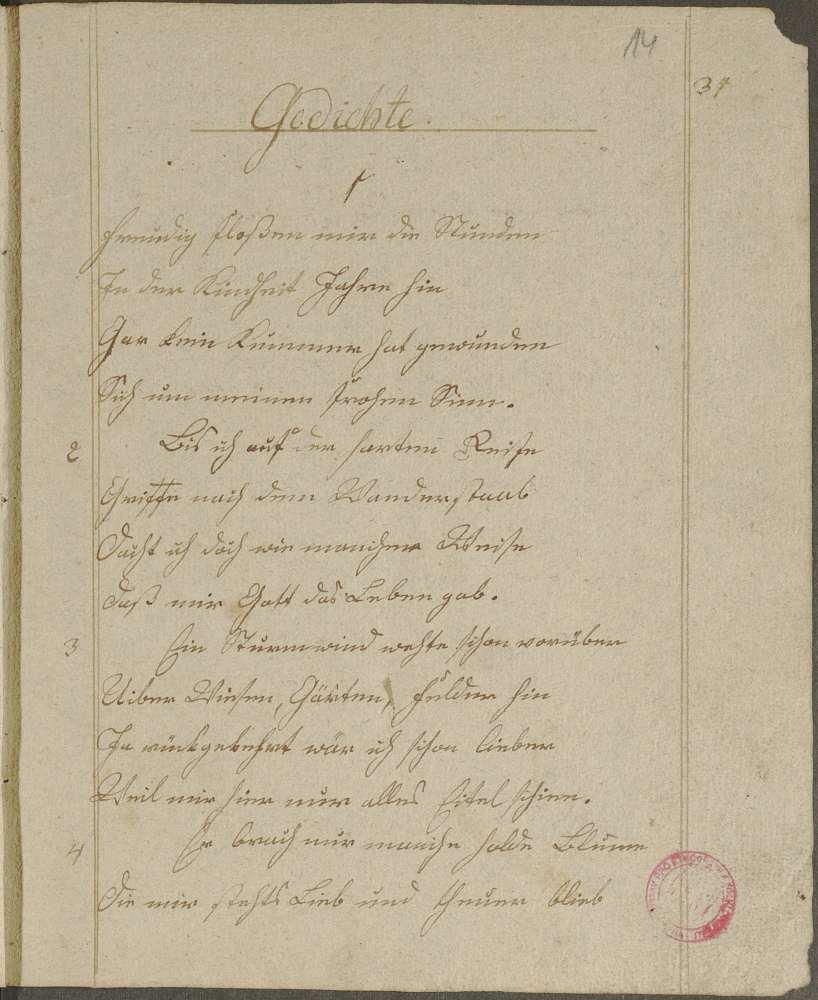 14
34
Gedichte.
1
Freudig floßen mir die Stunden
In der Kindheit Jahre hin
Gar kein Kummer hat gewunden
Sich um meinen frohen Sinn.
2 Bis ich auf der harten Reise
Griffe nach dem Wanderstaab
Dacht ich doch wie mancher Weise
Daß mir Gott das Leben gab.
3 Ein Sturmwind wehte schon vorüber
Uiber Wiesen, Gärten, Felder hin
Ja rückgekehrt wär ich schon lieber
Weil mir hier nur alles Eitel schien.
4 Er brach nur manche holde Blume
Die mir stehts Lieb und theuer blieb